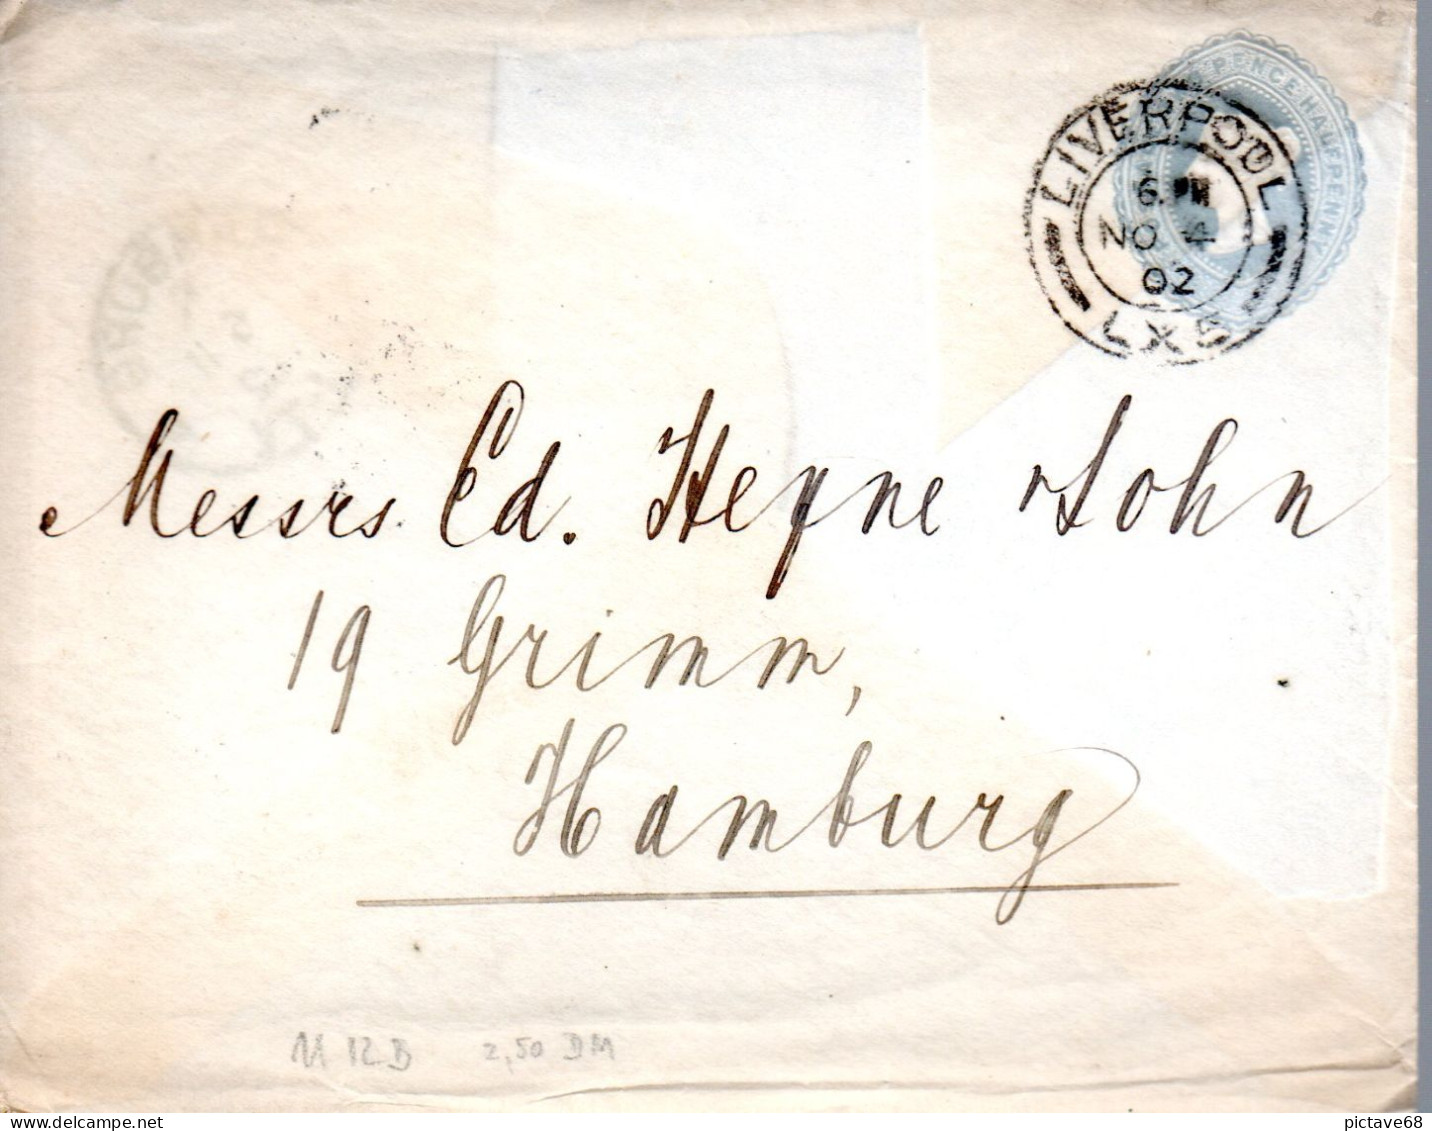 PENCE HALFPENNY
LIVERPOOL
6 PM
NO 4
02
LX S
Messrs Ed. Heyne Sohn
19 Grimm,
Hamburg
U 12 B 2,50 DM
pictave68